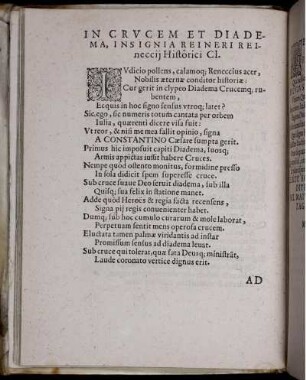 IN CRVCEM ET DIADE-
MA, INSIGNIA REINERI REI-
neccij Historici Cl.
IVdicio pollens, calamoq; Reneccius acer,
Nobilis æternæ conditor historiæ:
Cur gerit in clypeo Diadema Crucemq; ru-
bentem,
Et quis in hoc signo sensus vtroq; latet?
Sic ego, sic numeris totum cantata per orbem
Iulia, quærenti dicere visa fuit:
Vt reor, & nisi me mea fallit opinio, signa
A CONSTANTINO Cæsare sumpta gerit.
Primus hic imposuit capiti Diadema, suosq;
Armis appictas iussit habere Cruces.
Nempe quod ostento monitus, formidine presso
In sola didicit spem superesse cruce.
Sub cruce
Quisq; sua felix in statione manet.
Adde quod Herois & regis facta recensens,
Signa pij regis conuenienter habet.
Dumq; sub hoc cumulo curarum & mole laborat,
Perpetuam sentit mens operosa crucem.
Eluctata tamen palmæ viridantis ad instar
Promissum sensus ad diadema leuat.
Sub cruce qui tolerat, quæ fata Deusq; ministrãt,
Laude coronato vertice dignus erit.
AD